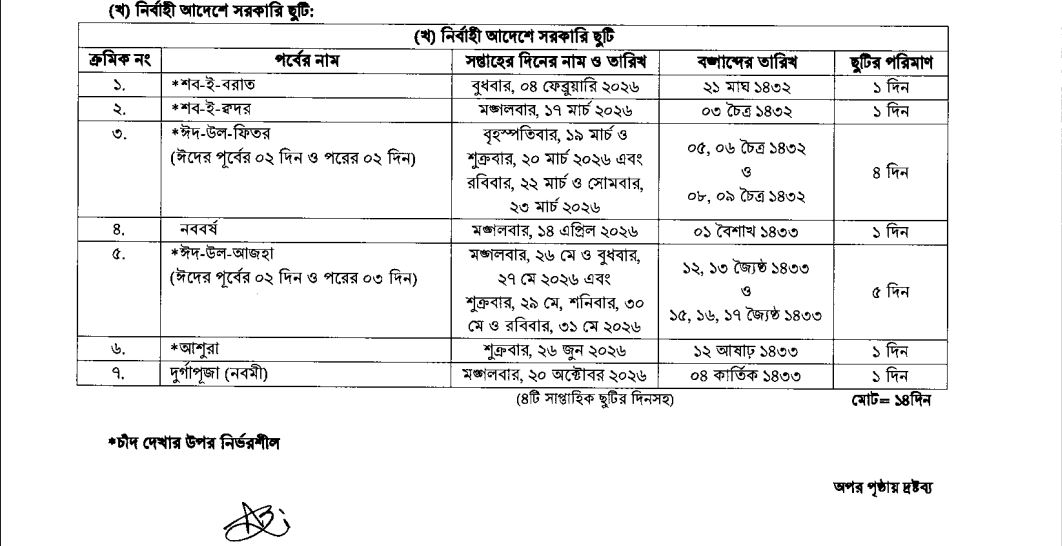 (খ) নির্বাহী আদেশে সরকারি ছুটি:
(খ) নির্বাহী আদেশে সরকারি ছুটি
ক্রমিক নং পর্বের নাম সপ্তাহের দিনের নাম ও তারিখ বঙ্গাব্দের তারিখ ছুটির পরিমাণ
১. *শব-ই-বরাত বুধবার, ০৪ ফেব্রুয়ারি ২০২৬ ২১ মাঘ ১৪৩২ ১ দিন
২. *শব-ই-ক্বদর মঙ্গলবার, ১৭ মার্চ ২০২৬ ০৩ চৈত্র ১৪৩২ ১ দিন
৩. *ঈদ-উল-ফিতর
(ঈদের পূর্বের ০২ দিন ও পরের ০২ দিন)
বৃহস্পতিবার, ১৯ মার্চ ও
শুক্রবার, ২০ মার্চ ২০২৬ এবং
রবিবার, ২২ মার্চ ও সোমবার,
২৩ মার্চ ২০২৬
০৫, ০৬ চৈত্র ১৪৩২
ও
০৮, ০৯ চৈত্র ১৪৩২
৪ দিন
৪. নববর্ষ মঙ্গলবার, ১৪ এপ্রিল ২০২৬ ০১ বৈশাখ ১৪৩৩ ১ দিন
৫. *ঈদ-উল-আজহা
(ঈদের পূর্বের ০২ দিন ও পরের ০৩ দিন)
মঙ্গলবার, ২৬ মে ও বুধবার,
২৭ মে ২০২৬ এবং
শুক্রবার, ২৯ মে, শনিবার, ৩০
মে ও রবিবার, ৩১ মে ২০২৬
১২, ১৩ জ্যৈষ্ঠ ১৪৩৩
ও
১৫, ১৬, ১৭ জ্যৈষ্ঠ ১৪৩৩
৫ দিন
৬. *আশুরা শুক্রবার, ২৬ জুন ২০২৬ ১২ আষাঢ় ১৪৩৩ ১ দিন
৭. দুর্গাপূজা (নবমী) মঙ্গলবার, ২০ অক্টোবর ২০২৬ ০৪ কার্তিক ১৪৩৩ ১ দিন
(৪টি সাপ্তাহিক ছুটির দিনসহ) মোট= ১৪দিন
*চাঁদ দেখার উপর নির্ভরশীল
অপর পৃষ্ঠায় দ্রষ্টব্য